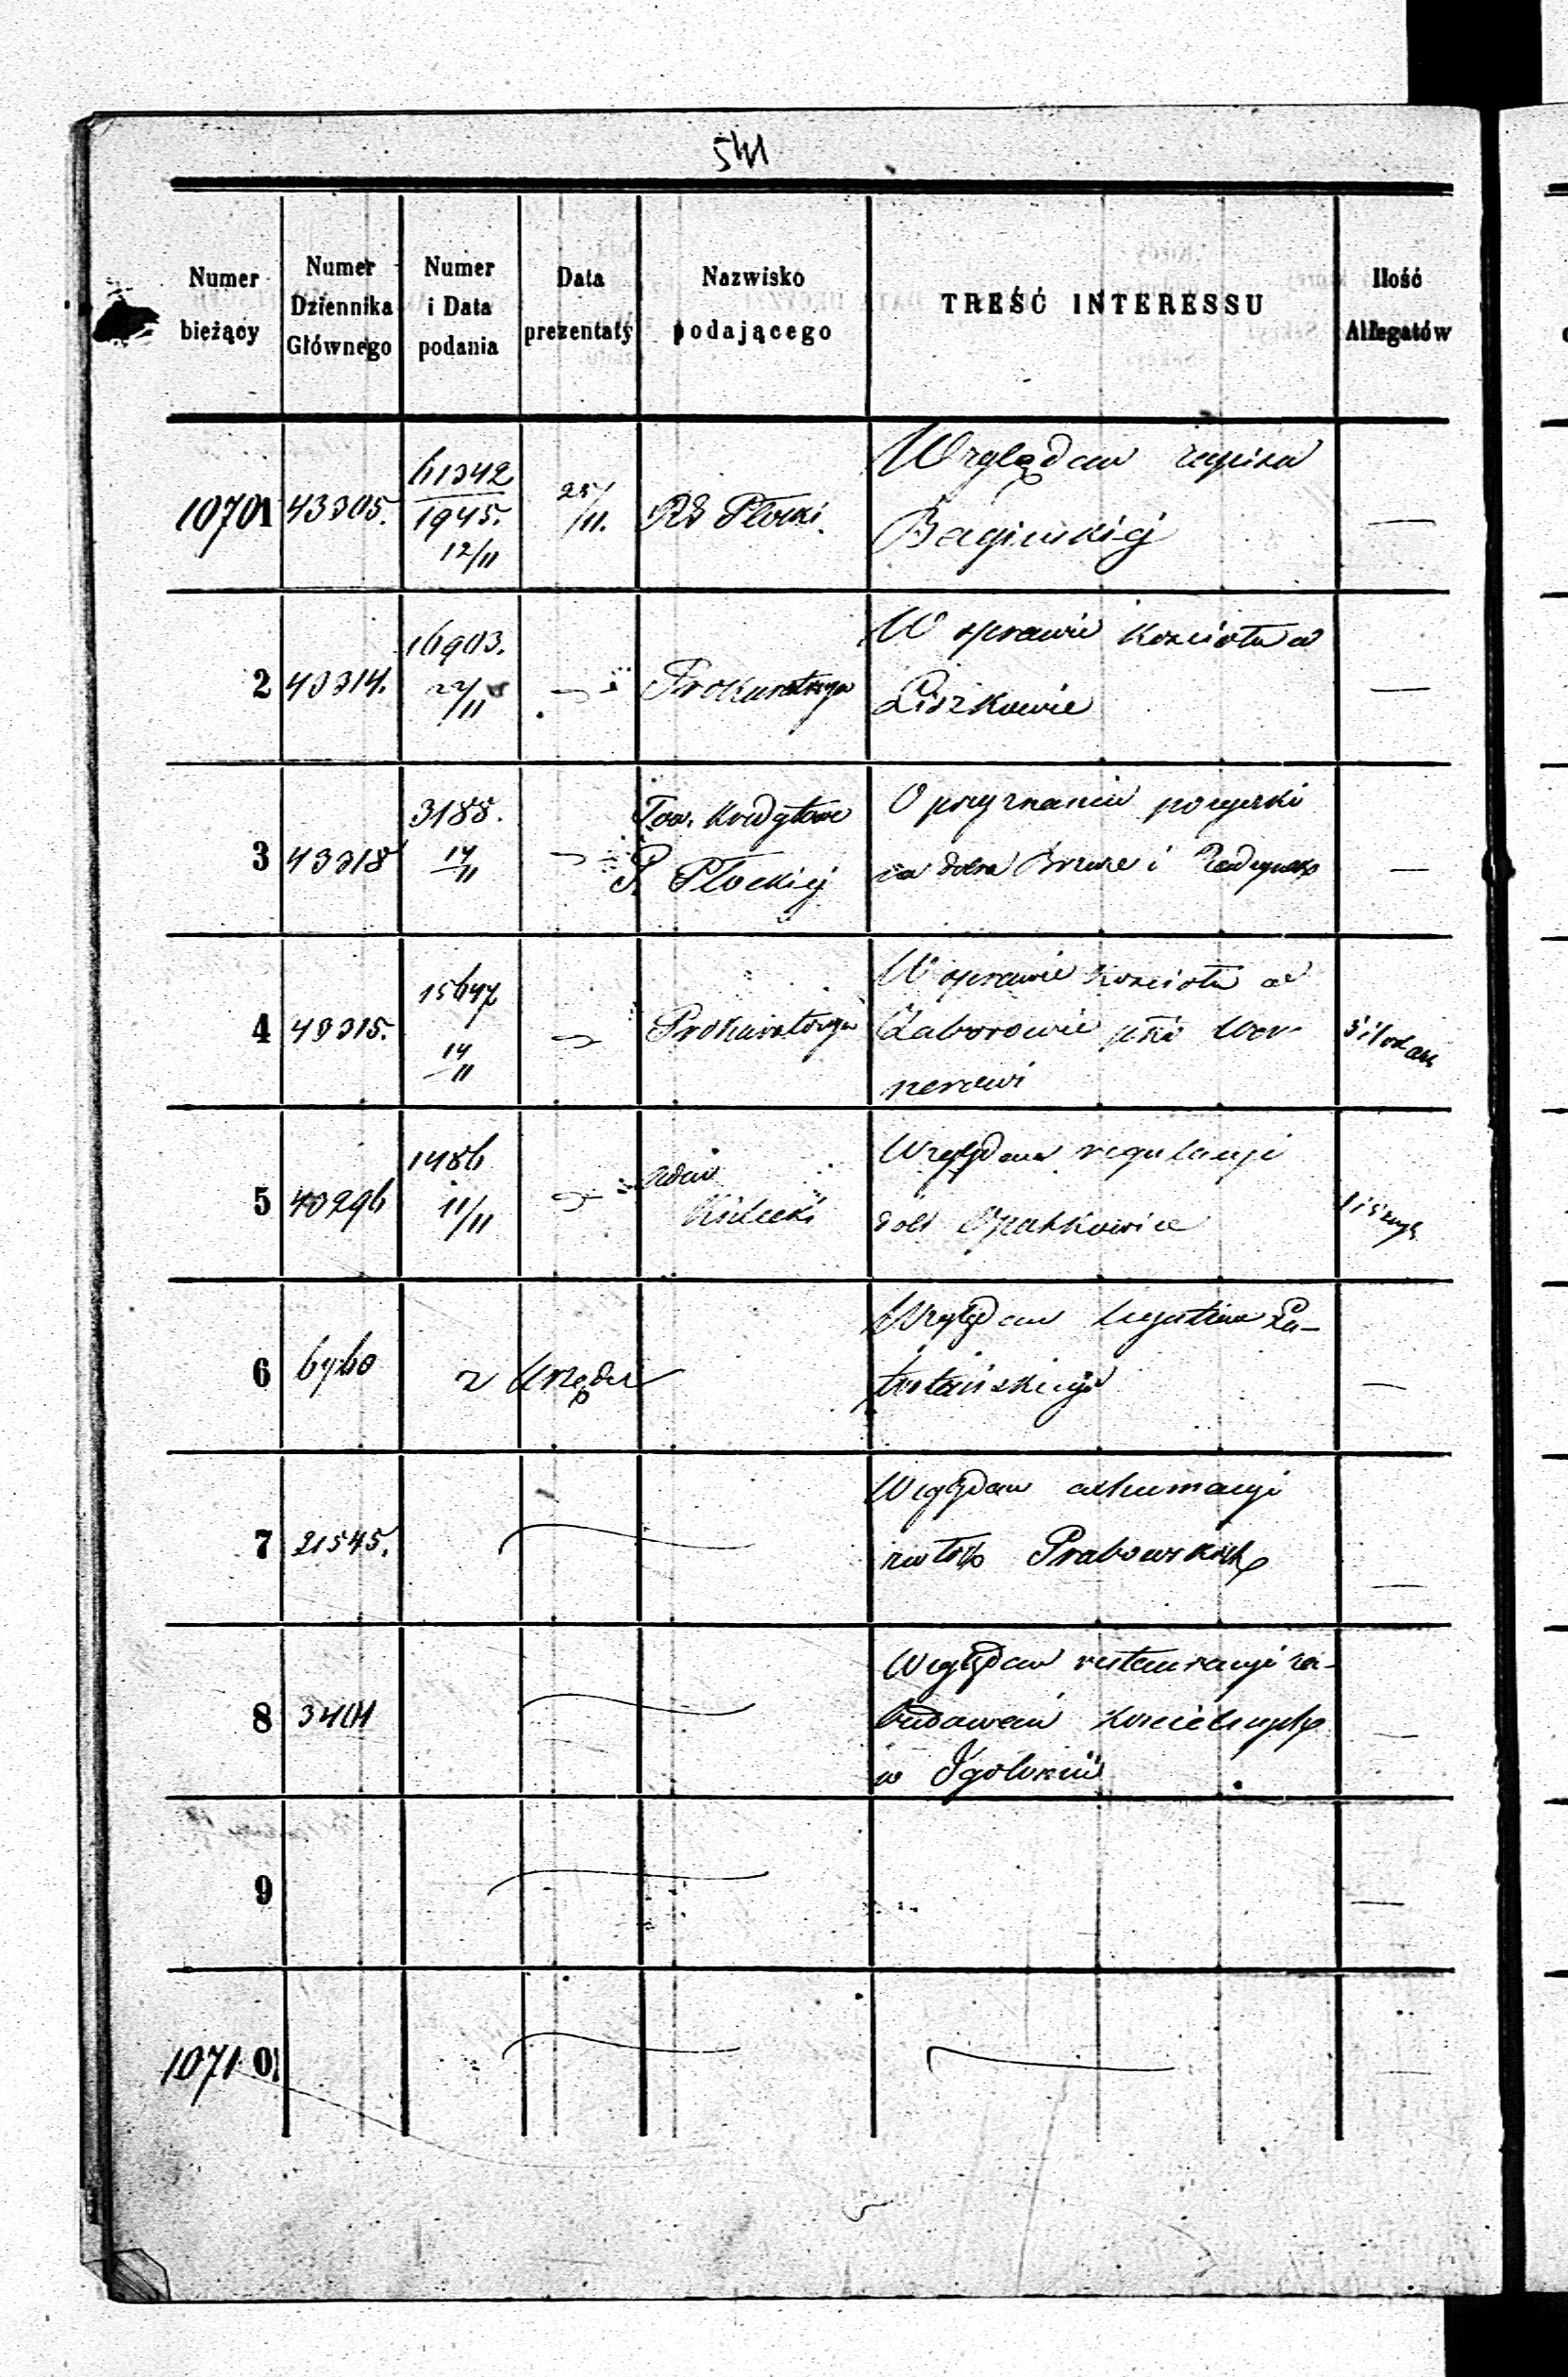 541
Numer bieżący
Numer Dziennika Głównego
Numer i Data podania
Data prezentaty
Nazwisko podającego
TREŚĆ INTERESSU
Ilość Allegatów
10701 43305. 61342 / 1945. 12/11 25/11. RG Płocki Względem zapisu —
Bagińskiej
2 43314. 16903. 22/11 Prokuratorya W sprawie Kościoła w —
Liszkowie
3 43318 3188. 14/11 Tow. Kredytowe O przyznaniu pożyczki —
P. Płockiej na dobra i
4 43315. 15647 14/11 Prokuratorya W sprawie Kościoła w
Zaborowie Wer-
nerowi
5 43296 1486 11/11 Kielecki Względem regulacyi
dóbr Opatkowice
6 6760 z Urzędu Względem —
7 21545. Względem exhumacyi
zwłok Grabowskich —
8 3401 Względem restauracyi za-
budowań Kościelnych —
w Igołomii
9 —
10710 —